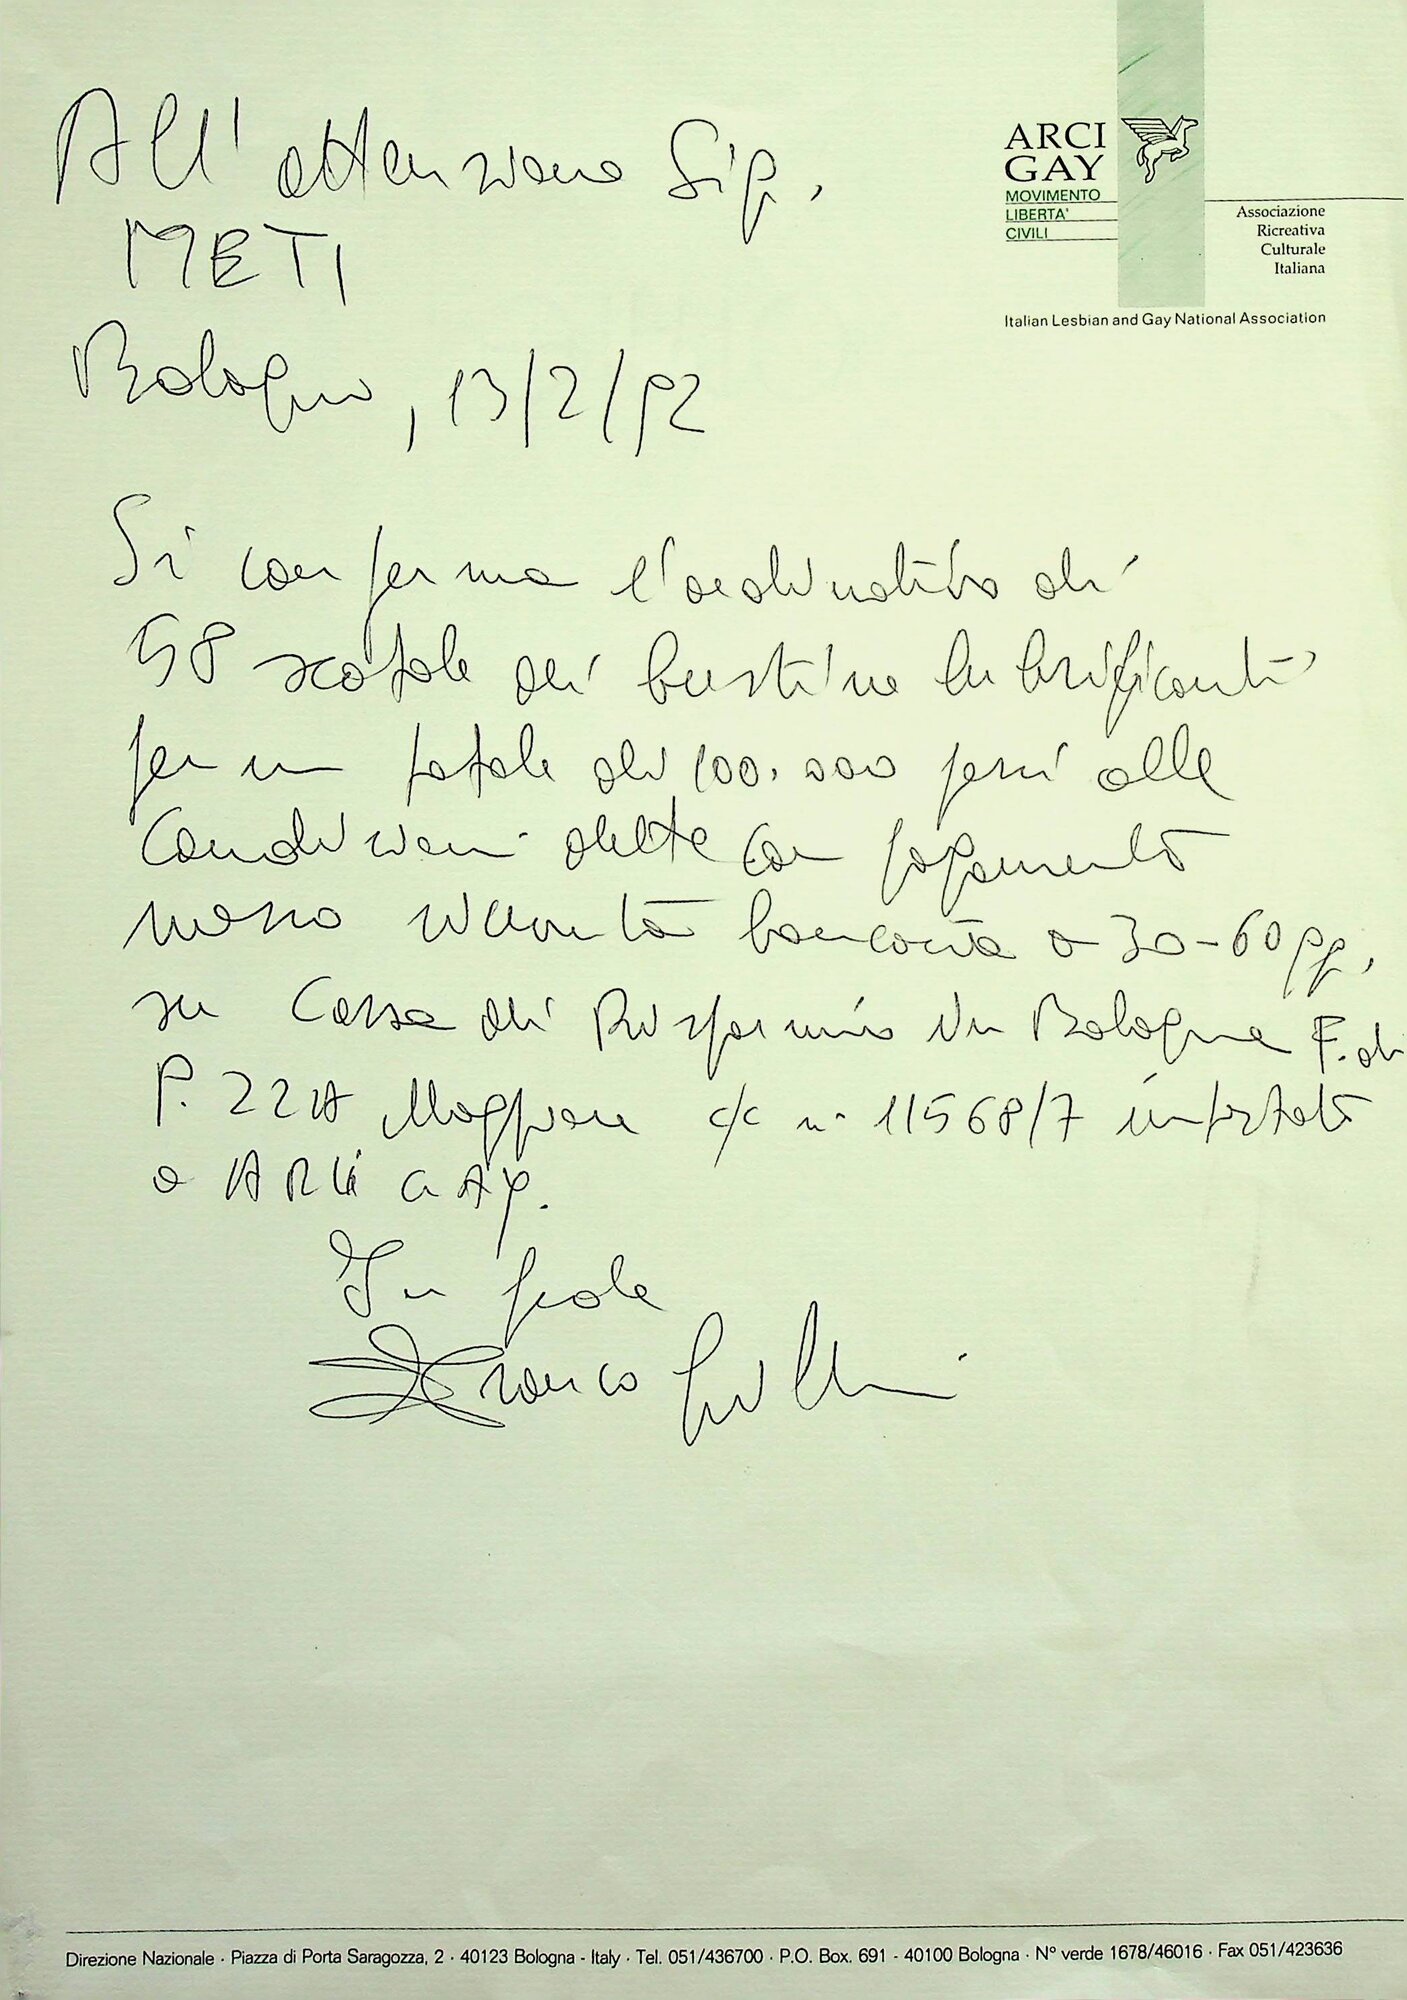 ARCI
GAY
MOVIMENTO
LIBERTA'
CIVILI
Associazione
Ricreativa
Culturale
Italiana
Italian Lesbian and Gay National Association
All'attenzione Sig.
METI
Bologna, 13/2/92
Si conferma l'ordinativo di
58 scatole di bustine lubrificanti
per un totale di 100.000 pezzi alle
condizioni dette con pagamento
messo ricevuta bancaria a 30-60 gg.
su Cassa di Risparmio in Bologna F. di
P.zza Maggiore c/c n. 11568/7 intestato
a ARCI GAY.
In fede
Franco Grillini
Direzione Nazionale · Piazza di Porta Saragozza, 2 · 40123 Bologna - Italy · Tel. 051/436700 · P.O. Box. 691 - 40100 Bologna · N° verde 1678/46016 · Fax 051/423636